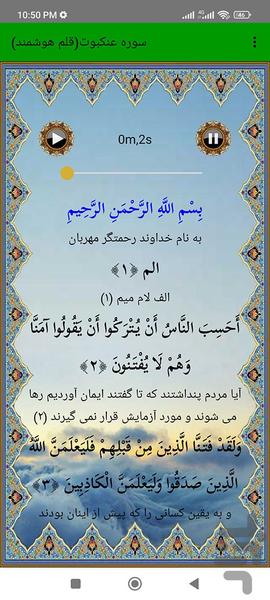 10:50 PM
سوره عنکبوت(قلم هوشمند)
0m,2s
بِسْمِ اللَّهِ الرَّحْمَنِ الرَّحِيمِ
به نام خداوند رحمتگر مهربان
الم ﴿۱﴾
الف لام میم (۱)
أَحَسِبَ النَّاسُ أَنْ يُتْرَكُوا أَنْ يَقُولُوا آمَنَّا
وَهُمْ لَا يُفْتَنُونَ ﴿۲﴾
آیا مردم پنداشتند که تا گفتند ایمان آوردیم رها
می شوند و مورد آزمایش قرار نمی گیرند (۲)
وَلَقَدْ فَتَنَّا الَّذِينَ مِنْ قَبْلِهِمْ فَلَيَعْلَمَنَّ اللَّهُ
الَّذِينَ صَدَقُوا وَلَيَعْلَمَنَّ الْكَاذِبِينَ ﴿۳﴾
و به یقین کسانی را که پیش از اینان بودند